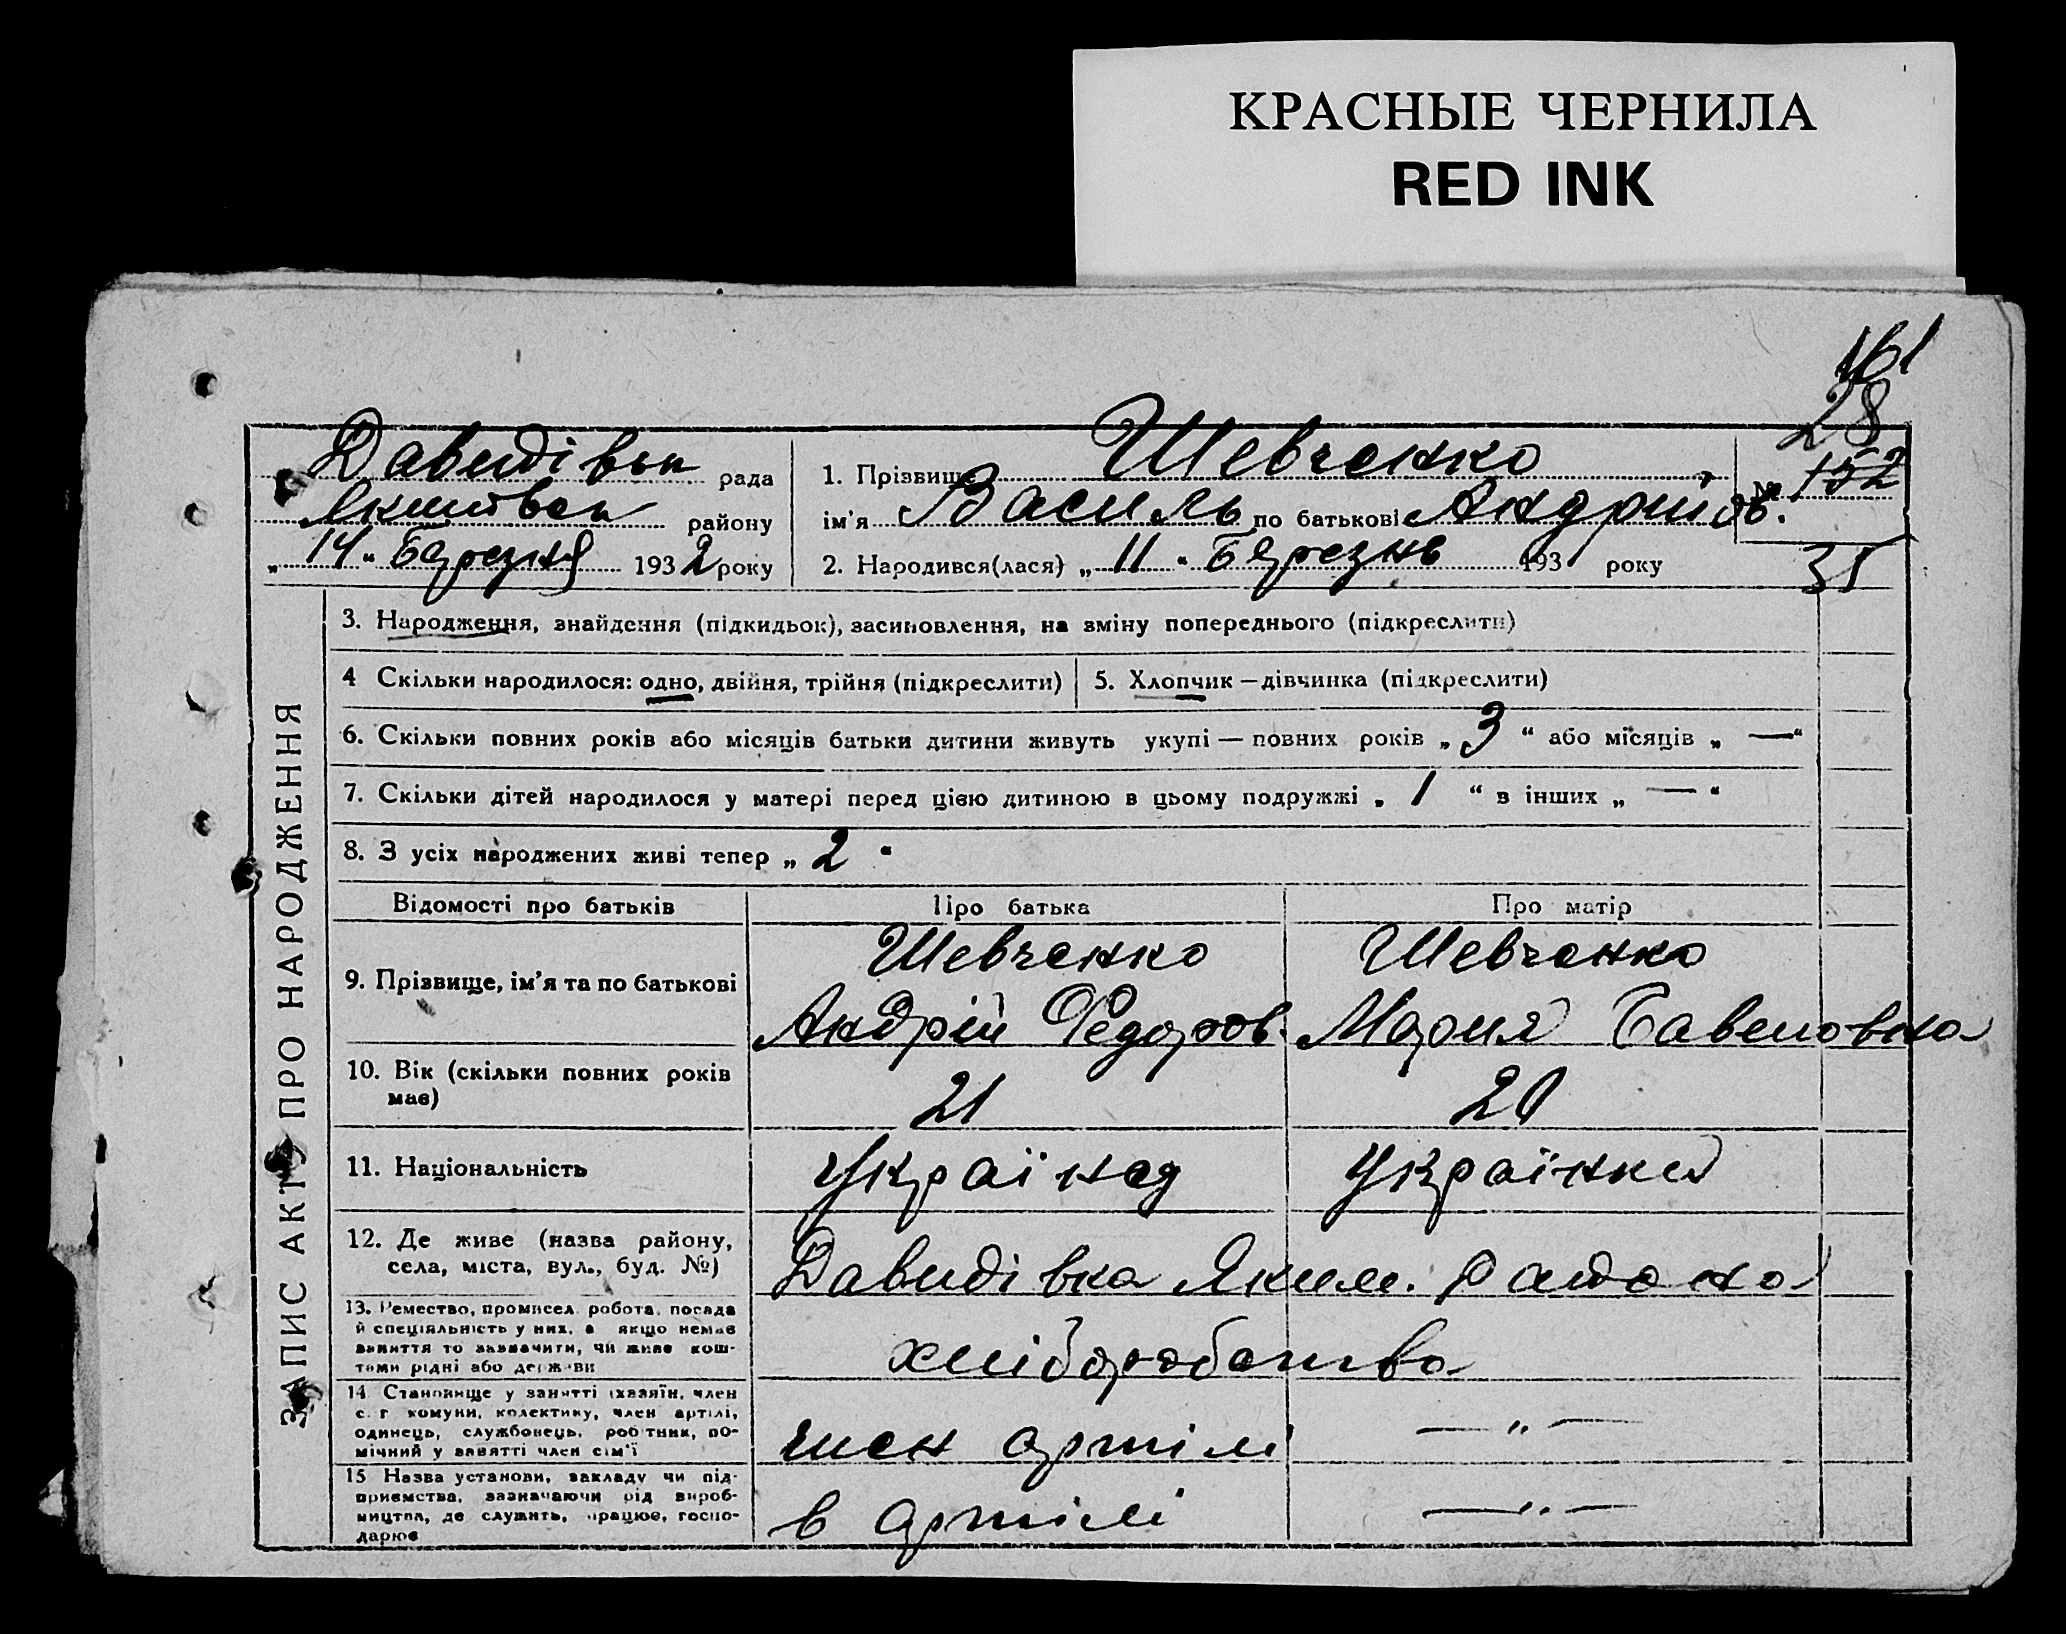 КРАСНЫЕ ЧЕРНИЛА
RED INK
161
28
Давидівськ рада
районy
„14“ Березня 1932 року
1. Прізвище Шевченко
ім'я Василь по батькові Андрійов.
№ 152
2. Народився(лася) „11“ Березнь 193 року
35
ЗАПИС АКТУ ПРО НАРОДЖЕННЯ
3. Народження, знайдення (підкидьок), засиновлення, на зміну попереднього (підкреслити)
4 Скільки народилося: одно, двійня, трійня (підкреслити)
5. Хлопчик—дівчинка (підкреслити)
6. Скільки повних років або місяців батьки дитини живуть укупі — повних років „3“ або місяців „—“
7. Скільки дітей народилося у матері перед цією дитиною в цьому подружжі „1“ в інших „—“
8. З усіх народжених живі тепер „2“
Відомості про батьків Про батька Про матір
9. Прізвище, ім'я та по батькові
Шевченко Шевченко
Андрій Федоров. Мария
10. Вік (скільки повних років має)
21 20
11. Національність
Українец Українка
12. Де живе (назва району,
села, міста, вул., буд. №)
Давидівка Яким. района
13. Ремество, промисел, робота, посада
й спеціяльність у них, а якщо немає
заняття то зазначити, чи живе кош-
тами рідні або держави
хліборобство
14 Становище у занятті (хазяїн, член
с. г. комуни, колективу, член артілі,
одинець, службовець, робітник, по-
мічний у занятті член сім'ї
член артілі —„—
15 Назва установи, закладу чи під-
приємства, зазначаючи рід вироб-
ництва, де служить, працює, госпо-
дарює
в артілі —„—